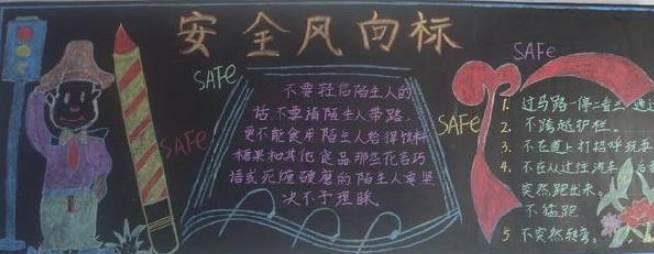 安全风向标
SAFe
SAFe
SAFe
SAFe
不要轻信陌生人的
话.不要请陌生人带路,
更不能食用陌生人给得饮料
糖果和其他食品那些花言巧
语或死缠硬磨的陌生人要坚
决不予理睬。
1、过马路一停二看三通过
2、不跨越护栏。
3、不在道上打招呼玩耍
4、不在从过往汽车
突然跑出来。
不猛跑
5 不突然转弯。